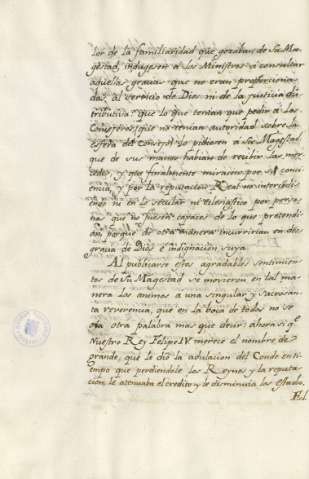 lor de la familiaridad que gozaban de Su Ma-
gestad, induzesen a los Ministros à consultar
aquella gracia que no eran proporciona-
das al servicio de Dios ni de la justicia dis-
tributiva: que lo que tenian que pedir à los
Consejeros, no tenian autoridad sobre la
esfera del Consejo, lo pidiesen a Su Magestad,
que de sus manos habian de recivir las mer-
cedes, y que finalmente mirasen por su con-
ciencia, y por la reputacion Real no intercedien-
do ni en lo secular ni eclesiastico por perso-
na que no fuesen capaces de lo que pretendi-
an, porque de otra manera incurririan en des-
gracia de Dios è indignacion suya.
Al publicarse estos agradables sentimien-
tos de Su Magestad se movieron en tal ma-
nera los animos a una singular y sacrosan-
ta reverencia, que en la boca de todos no se
oía otra palabra mas que decir: ahora si qe.
Nuestro Rey Felipe IV merece el nombre de
grande, que le dió la adulacion del Conde en ti-
empo que perdiendole los Reynos y la reputa-
cion, le atenuaba el credito y le disminuia los Estados.
El